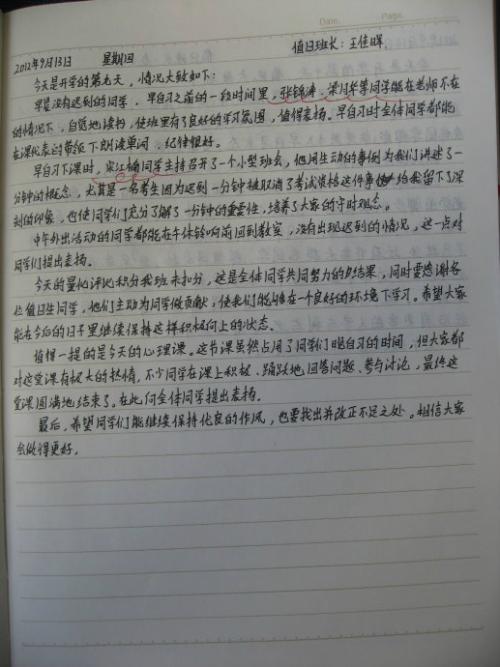 Date. Page.
2012年9月13日 星期四 值日班长：王佳晖
今天是开学的第九天，情况大致如下：
早晨没有迟到的同学，早自习之前的一段时间里，张锦涛、宋江楠等同学能在老师不在
的情况下，自觉地读书，使班里有了良好的学习氛围，值得表扬。早自习时全体同学都能
在课代表的带领下朗读单词，纪律很好。
早自习下课时，宋江楠同学主持召开了一个小型班会，他用生动的事例为我们讲述了一
分钟的概念，尤其是一名考生因为迟到一分钟被取消了考试资格这件事给我留下了深
刻的印象，也使同学们充分了解了一分钟的重要性，培养了大家的守时观念。
中午外出活动的同学都能在午休铃响前回到教室，没有出现迟到的情况，这一点对
同学们提出表扬。
今天的量化评比积分我班未扣分，这是全体同学共同努力的结果，同时要感谢各
位值日生同学，他们主动为同学做贡献，使我们能够在一个良好的环境下学习。希望大家
能在今后的日子里继续保持这样积极向上的状态。
值得一提的是今天的心理课。这节课虽然占用了同学们晚自习的时间，但大家都
对这堂课有极大的热情，不少同学在课上积极、踊跃地回答问题、参与讨论，最终这
堂课圆满地结束了。在此向全体同学提出表扬。
最后，希望同学们能继续保持优良的作风，也要找出并改正不足之处。相信大家
会做得更好。